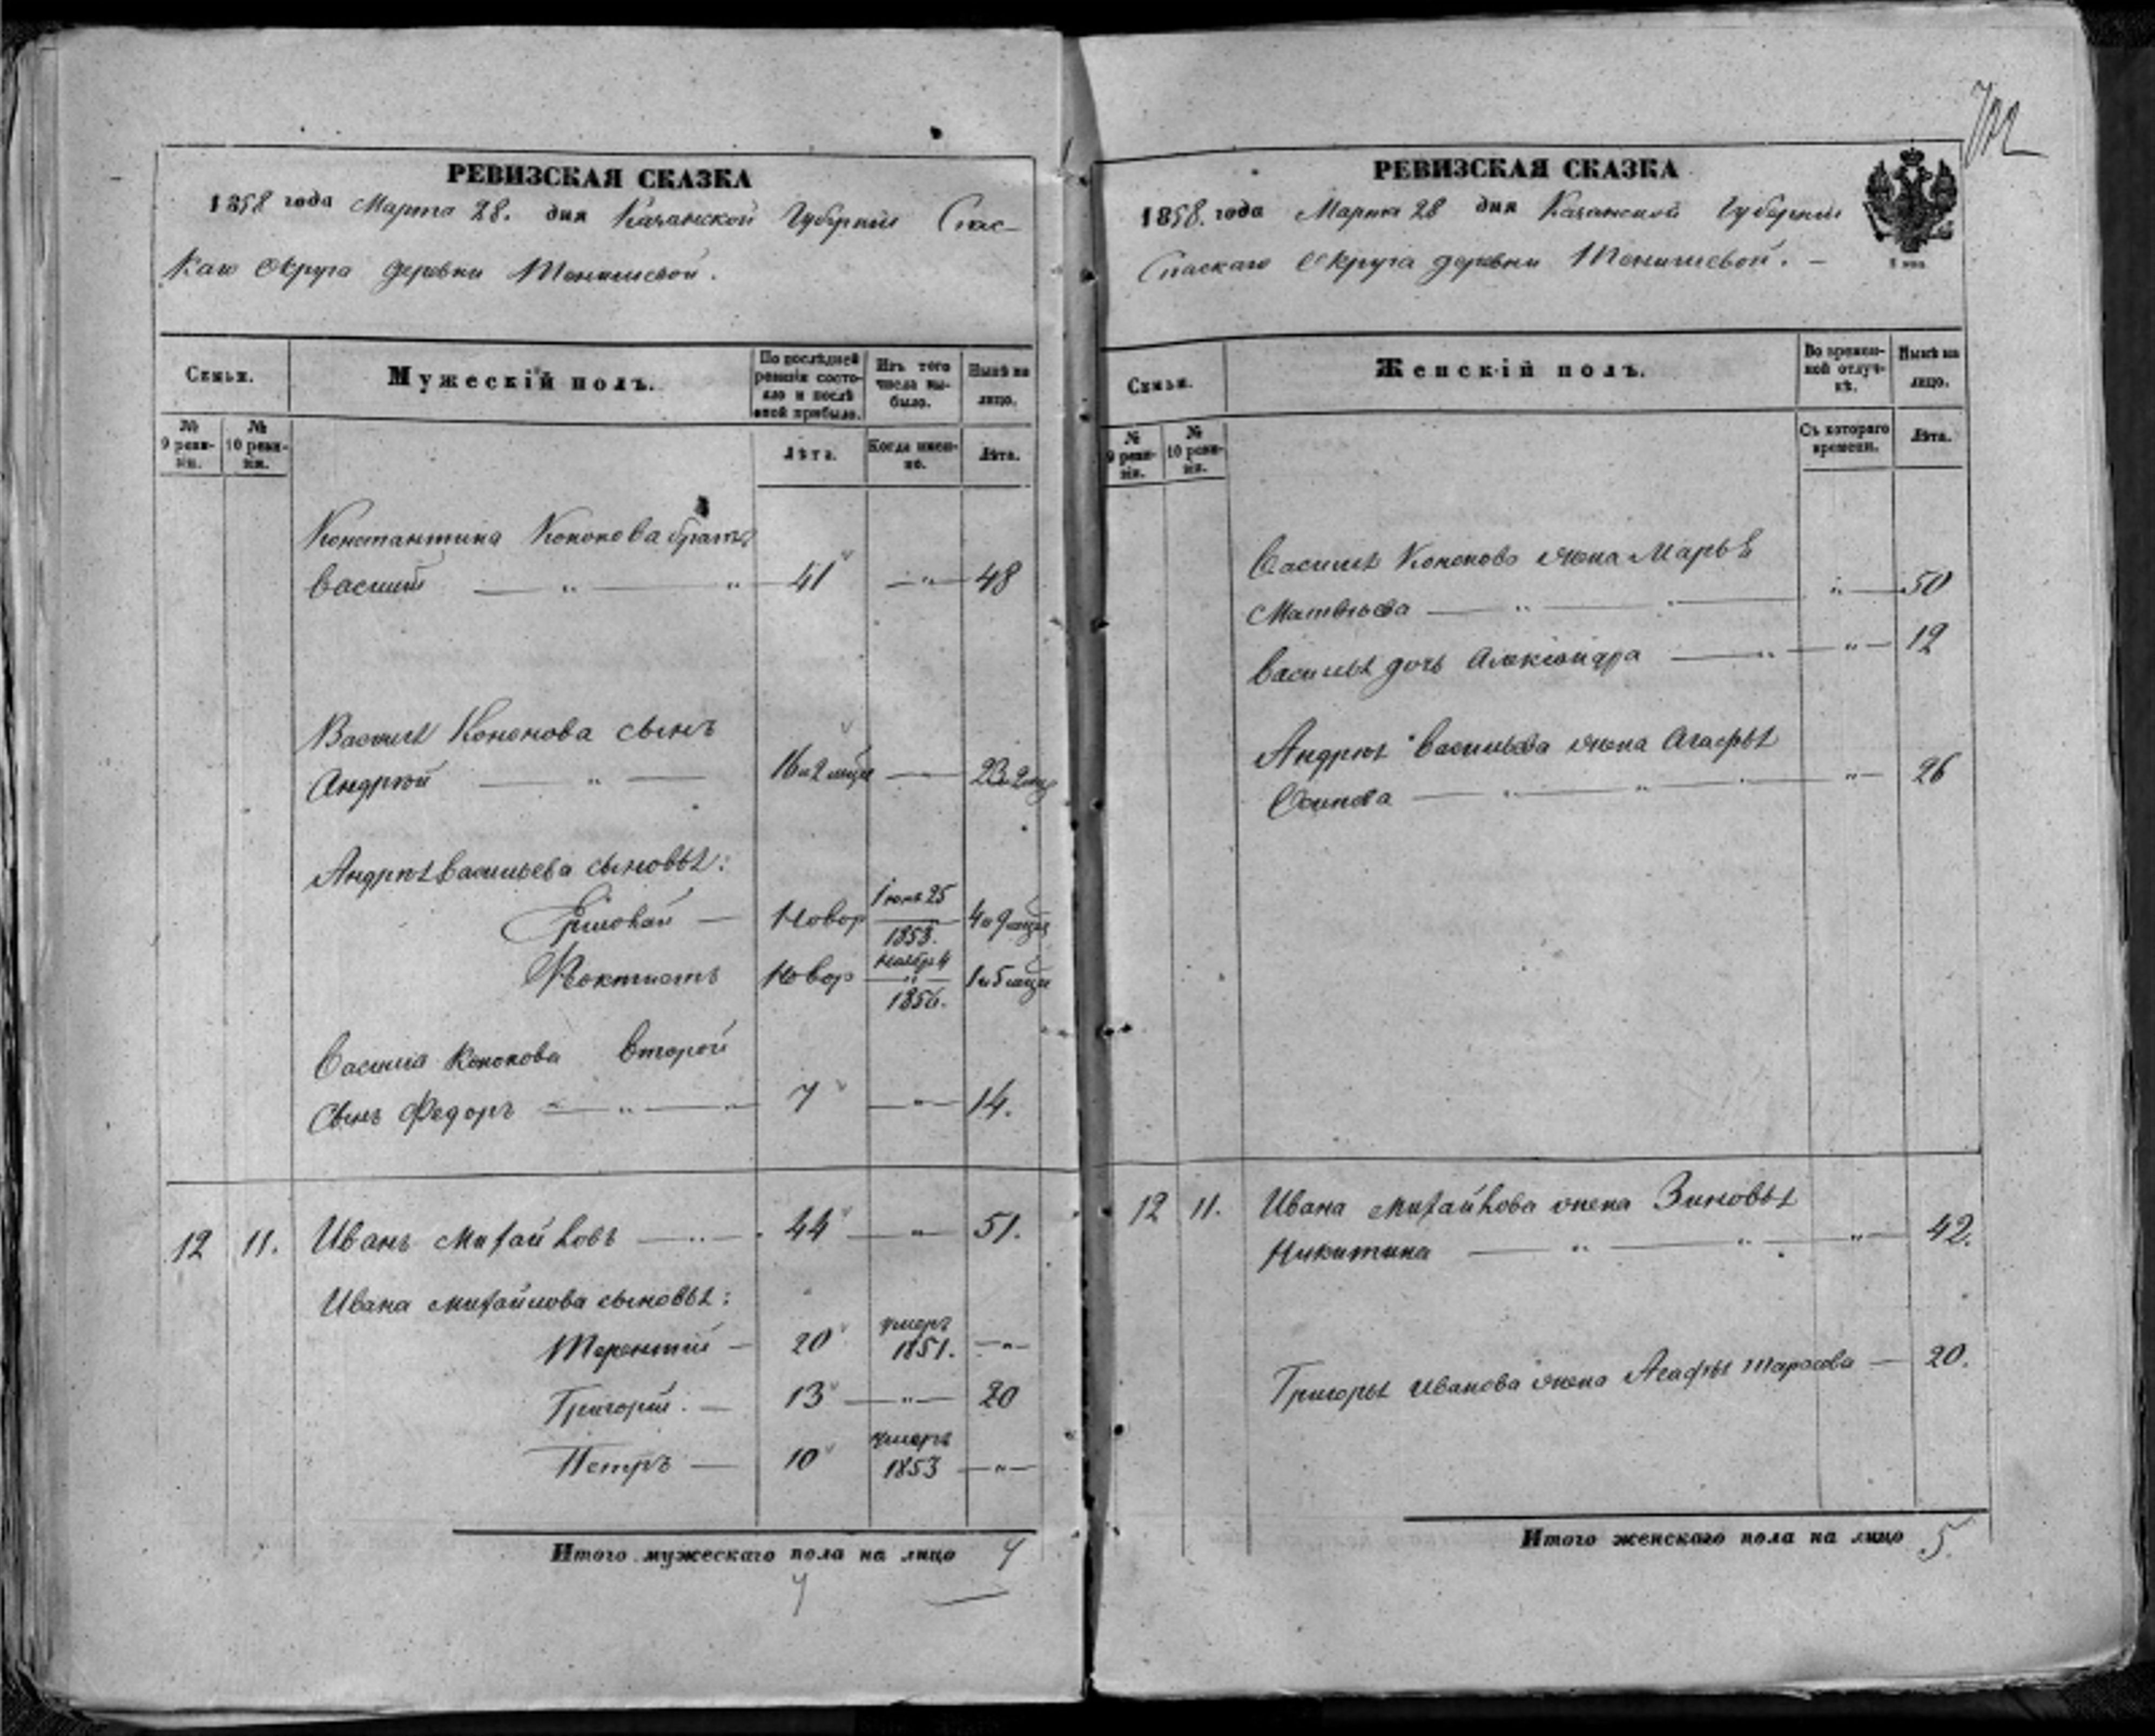 702
РЕВИЗСКАЯ СКАЗКА
1858 года Марта 28. дня Казанской Губерніи Спас-
каго Округа деревни Тенишевой.
Семьи.
Мужескій полъ.
По послѣдней ревизіи состояло и послѣ оной прибыло.
Изъ того числа выбыло.
Нынѣ на лицо.
№ 9 ревизіи.
№ 10 ревизіи.
Лѣта.
Когда именно.
Лѣта.
Константина Кононова братъ
Василій — „ — „ — 41 — „ — 48
Василья Кононова сынъ
Андрей — „ — 16 и 2 мѣця — 23 и 2 мѣц
Андрея Васильева сыновья:
Новор Іюня 25 1853. 4 и 9 мѣця
Феоктистъ Новор Ноябр 4 1856. 1 и 5 мѣця
Василья Кононова Второй
Сынъ Федоръ — „ — „ 7 — „ — 14.
12 11. Иванъ Михайловъ — „ — 44 — „ — 51.
Ивана Михайлова сыновья:
Терентий — 20 умеръ 1851. — „ —
Григорій. — 13 — „ — 20
Петръ — 10 умеръ 1853 — „ —
Итого мужескаго пола на лицо 7
7
РЕВИЗСКАЯ СКАЗКА
1858. года Марта 28 дня Казанской Губерніи
Спаскаго Округа деревни Тенишевой. —
Семьи.
Женскій полъ.
Во временной отлучкѣ.
Нынѣ на лицо.
№ 9 ревизіи.
№ 10 ревизіи.
Съ котораго времени.
Лѣта.
Василья Кононова жена Марья
Матвѣева — „ — „ — „ — 50
Василья дочь Александра — „ — „ — 12
Андрея Васильева жена Агафья
Осипова — „ — „ — „ — „ — 26
12 11. Ивана Михайлова жена Зиновья
Никитина — „ — „ — „ — 42.
Григорья Иванова жена Агафья Тарасова — 20.
Итого женскаго пола на лицо 5.